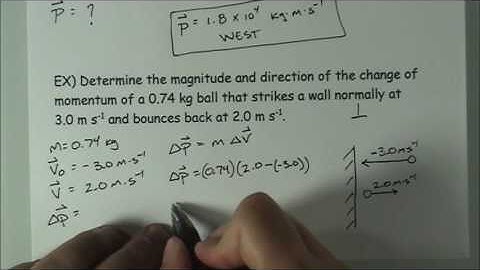 p⃗ = ?
p⃗ = 1.8 × 10⁴ kg·m·s⁻¹
WEST
EX) Determine the magnitude and direction of the change of
momentum of a 0.74 kg ball that strikes a wall normally at
3.0 m s⁻¹ and bounces back at 2.0 m s⁻¹.
⊥
m = 0.74 kg
v⃗₀ = -3.0 m·s⁻¹
v⃗ = 2.0 m·s⁻¹
Δp⃗ =
Δp⃗ = m Δv⃗
Δp⃗ = (0.74)(2.0-(-3.0))
-3.0 m·s⁻¹
2.0 m·s⁻¹